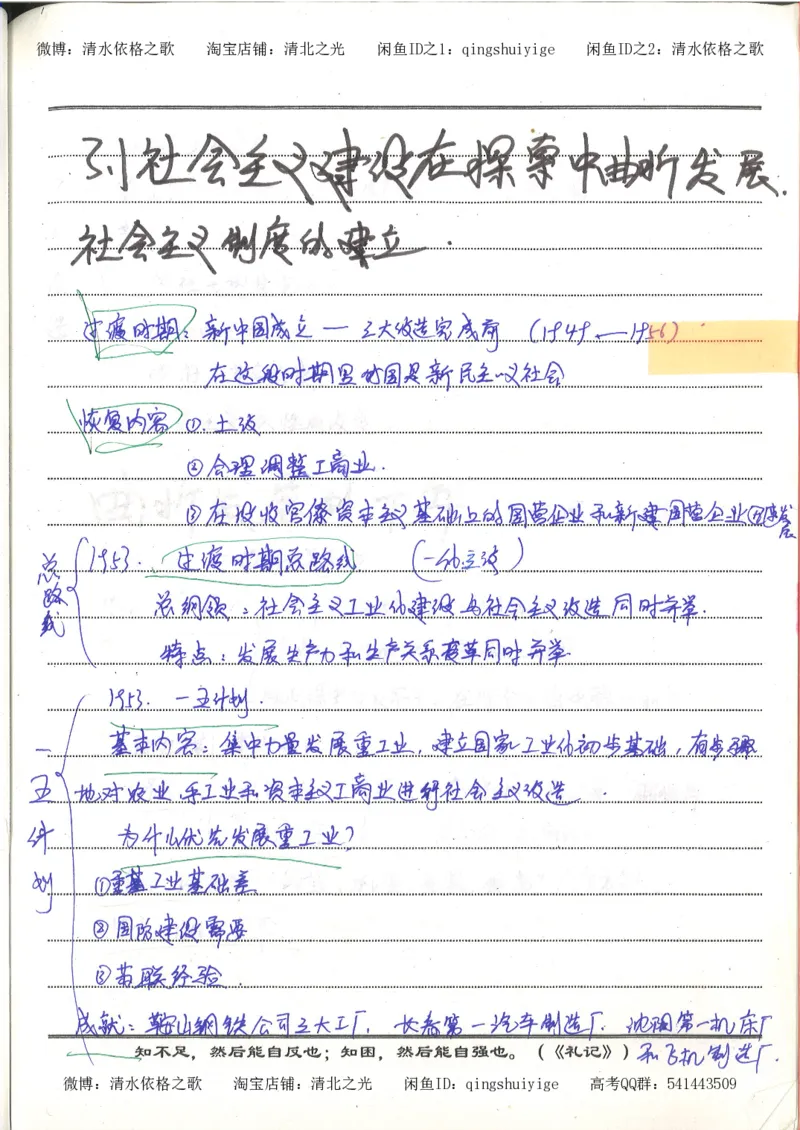 微博：清水依格之歌 淘宝店铺：清北之光 闲鱼ID之1：qingshuiyige 闲鱼ID之2：清水依格之歌
社会主义建设在探索中曲折发展.
社会主义制度的建立.
过渡时期：新中国成立 — 三大改造完成前 (1949 — 1956)
在这段时期里我国是新民主义社会
恢复内容 ①.土改
②合理调整工商业.
③在没收官僚资本主义基础上的国营企业和新建国营企业
发展
总路线
1953. 过渡时期总路线 (一化三改)
总纲领：社会主义工业的建设与社会主义改造同时并举.
特点：发展生产力和生产关系变革同时并举
一五计划
1953. 一五计划.
基本内容：集中力量发展重工业，建立国家工业化初步基础，有步骤
地对农业、手工业和资本主义工商业进行社会主义改造.
为什么优先发展重工业?
①重工业基础差
②国防建设需要
③苏联经验.
成就：鞍山钢铁公司三大工厂，长春第一汽车制造厂，沈阳第一机床厂
和飞机制造厂.
知不足，然后能自反也；知困，然后能自强也。（《礼记》）
微博：清水依格之歌 淘宝店铺：清北之光 闲鱼ID：qingshuiyige 高考QQ群：541443509